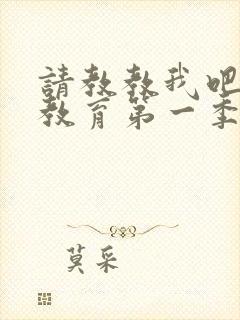 請教教我吧
教育第一季
莫采